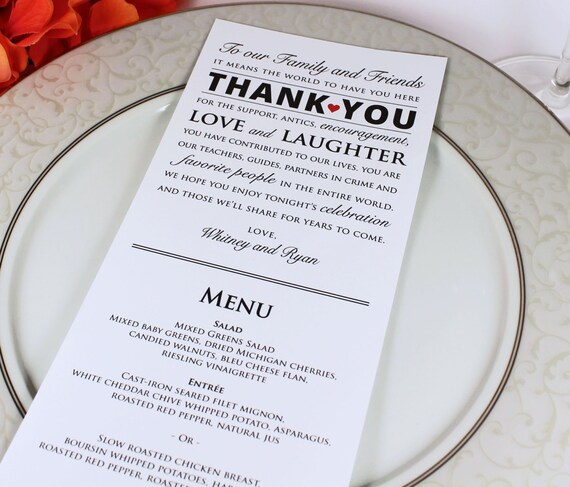 To our Family and Friends
IT MEANS THE WORLD TO HAVE YOU HERE
THANK YOU
FOR THE SUPPORT, ANTICS, encouragement,
LOVE and LAUGHTER
YOU HAVE CONTRIBUTED TO OUR LIVES. YOU ARE
OUR TEACHERS, GUIDES, PARTNERS IN CRIME AND
favorite people IN THE ENTIRE WORLD.
WE HOPE YOU ENJOY TONIGHT'S celebration
AND THOSE WE'LL SHARE FOR YEARS TO COME.
LOVE,
Whitney and Ryan
MENU
SALAD
MIXED GREENS SALAD
MIXED BABY GREENS, DRIED MICHIGAN CHERRIES,
CANDIED WALNUTS, BLEU CHEESE FLAN,
RIESLING VINAIGRETTE
ENTRÉE
CAST-IRON SEARED FILET MIGNON,
WHITE CHEDDAR CHIVE WHIPPED POTATO, ASPARAGUS,
ROASTED RED PEPPER, NATURAL JUS
- OR -
SLOW ROASTED CHICKEN BREAST,
BOURSIN WHIPPED POTATOES,
ROASTED RED PEPPER,